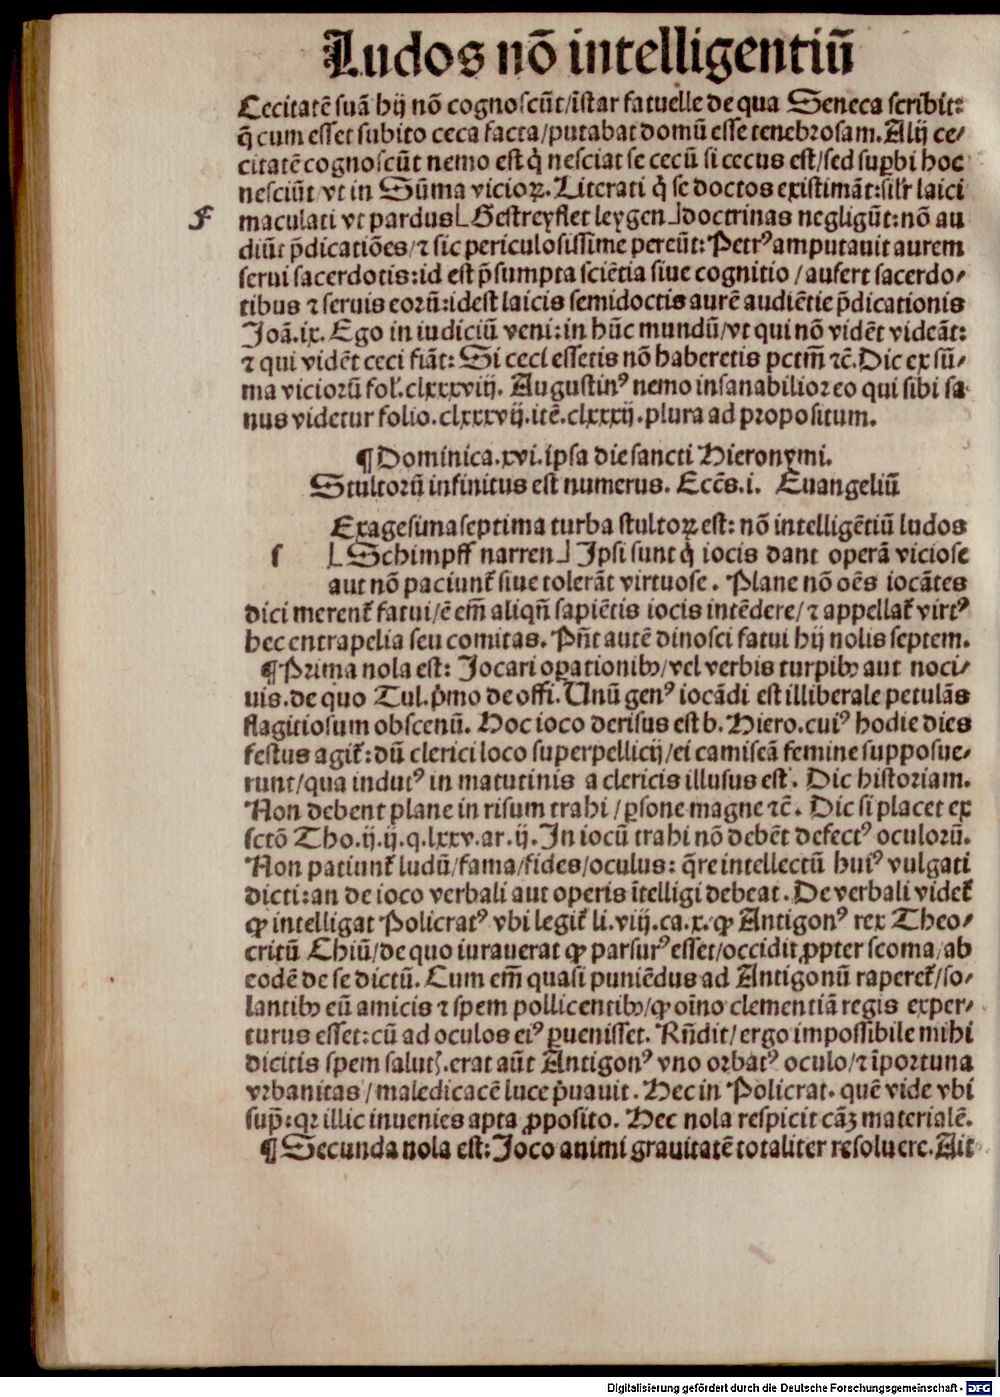 Ludos nō intelligentiū
Cecitatē suā hij nō cognoscūt/īstar fatuelle de qua Seneca scribit:
q̄ cum esset subito ceca facta/putabat domū esse tenebrosam. Alij ce/
citatē cognoscūt nemo est q̇ nesciat se cecū si cecus est/sed suꝑbi hoc
nesciūt/vt in Sūma vicioꝝ. Literati q̇ se doctos existimāt:silr̄ laici
F maculati vt pardus⌊Gestreyflet leygen⌋doctrinas negligūt:nō au
diūt p̄dicatiōes/⁊ sic periculosissime pereūt: Petrꝰ amputauit aurem
serui sacerdotis:id est p̄sumpta sciētia siue cognitio/aufert sacerdo/
tibus ⁊ seruis eorū:idest laicis semidoctis aurē audiētie p̄dicationis
Joā.ix. Ego in iudiciū veni:in hūc mundū/vt qui nō vidēt videāt:
⁊ qui vidēt ceci fiāt: Si ceci essetis nō haberetis pctm̄ ⁊c̄. Dic ex sū/
ma viciorū fol̄.clxxxviij. Augustinꝰ nemo insanabilior eo qui sibi sa
nus videtur folio.clxxxvij.itē.clxxxij.plura ad propositum.
¶Dominica.xvi.ipsa die sancti Hieronymi.
Stultorū infinitus est numerus. Ecc̄s.i. Euangeliū
Exagesimaseptima turba stultoꝝ est: nō intelligētiū ludos
f ⌊Schimpff narren⌋ Ipsi sunt q̇ iocis dant operā viciose
aut nō paciunt᷑ siue tolerāt virtuose. Plane nō oēs iocātes
dici merent᷑ fatui/ē em̄ aliqn̄ sapiētis iocis intēdere/⁊ appellat᷑ virtꝰ
hec entrapelia seu comitas. Pn̄t autē dinosci fatui hij nolis septem.
¶Prima nola est: Jocari oꝑationibꝫ/vel verbis turpibꝫ aut noci/
uis.de quo Tul.p̄mo de offi. Unū genꝰ iocādi est illiberale petulās
flagitiosum obscenū. Hoc ioco derisus est b. Hiero.cuiꝰ hodie dies
festus agit᷑:dū clerici loco superpellicij/ei camiseā femine supposue/
runt/qua indutꝰ in matutinis a clericis illusus est. Dic historiam.
Non debent plane in risum trahi/ꝑsone magne ⁊c̄. Dic si placet ex
sctō Tho.ij.ij.q.lxxv.ar.ij. In iocū trahi nō debēt defectꝰ oculorū.
Non patiunt᷑ ludū/fama/fides/oculus: q̄re intellectū huiꝰ vulgati
dicti:an de ioco verbali aut operis ītelligi debeat. De verbali videt᷑
ꝙ intelligat Policratꝰ vbi legit᷑ li.viij.ca.x.ꝙ Antigonꝰ rex Theo/
critū Chiū/de quo iurauerat ꝙ parsurꝰ esset/occidit ꝓpter scoma/ab
eodē de se dictū. Cum em̄ quasi puniēdus ad Antigonū raperet᷑/so/
lantibꝫ eū amicis ⁊ spem pollicentibꝫ/ꝙ oīno clementiā regis exper/
turus esset:cū ad oculos eiꝰ ꝑuenisset. Rn̄dit/ergo impossibile mihi
dicitis spem salutꝭ.erat aūt Antigonꝰ vno orbatꝰ oculo/⁊ īportuna
vrbanitas/maledicacē luce p̄uauit. Hec in Policrat. quē vide vbi
sup̄:qꝛ illic inuenies apta ꝓposito. Hec nola respicit cāꝫ materialē.
¶Secunda nola est: Joco animi grauitatē totaliter resoluere. Ait
Digitalisierung gefördert durch die Deutsche Forschungsgemeinschaft - DFG